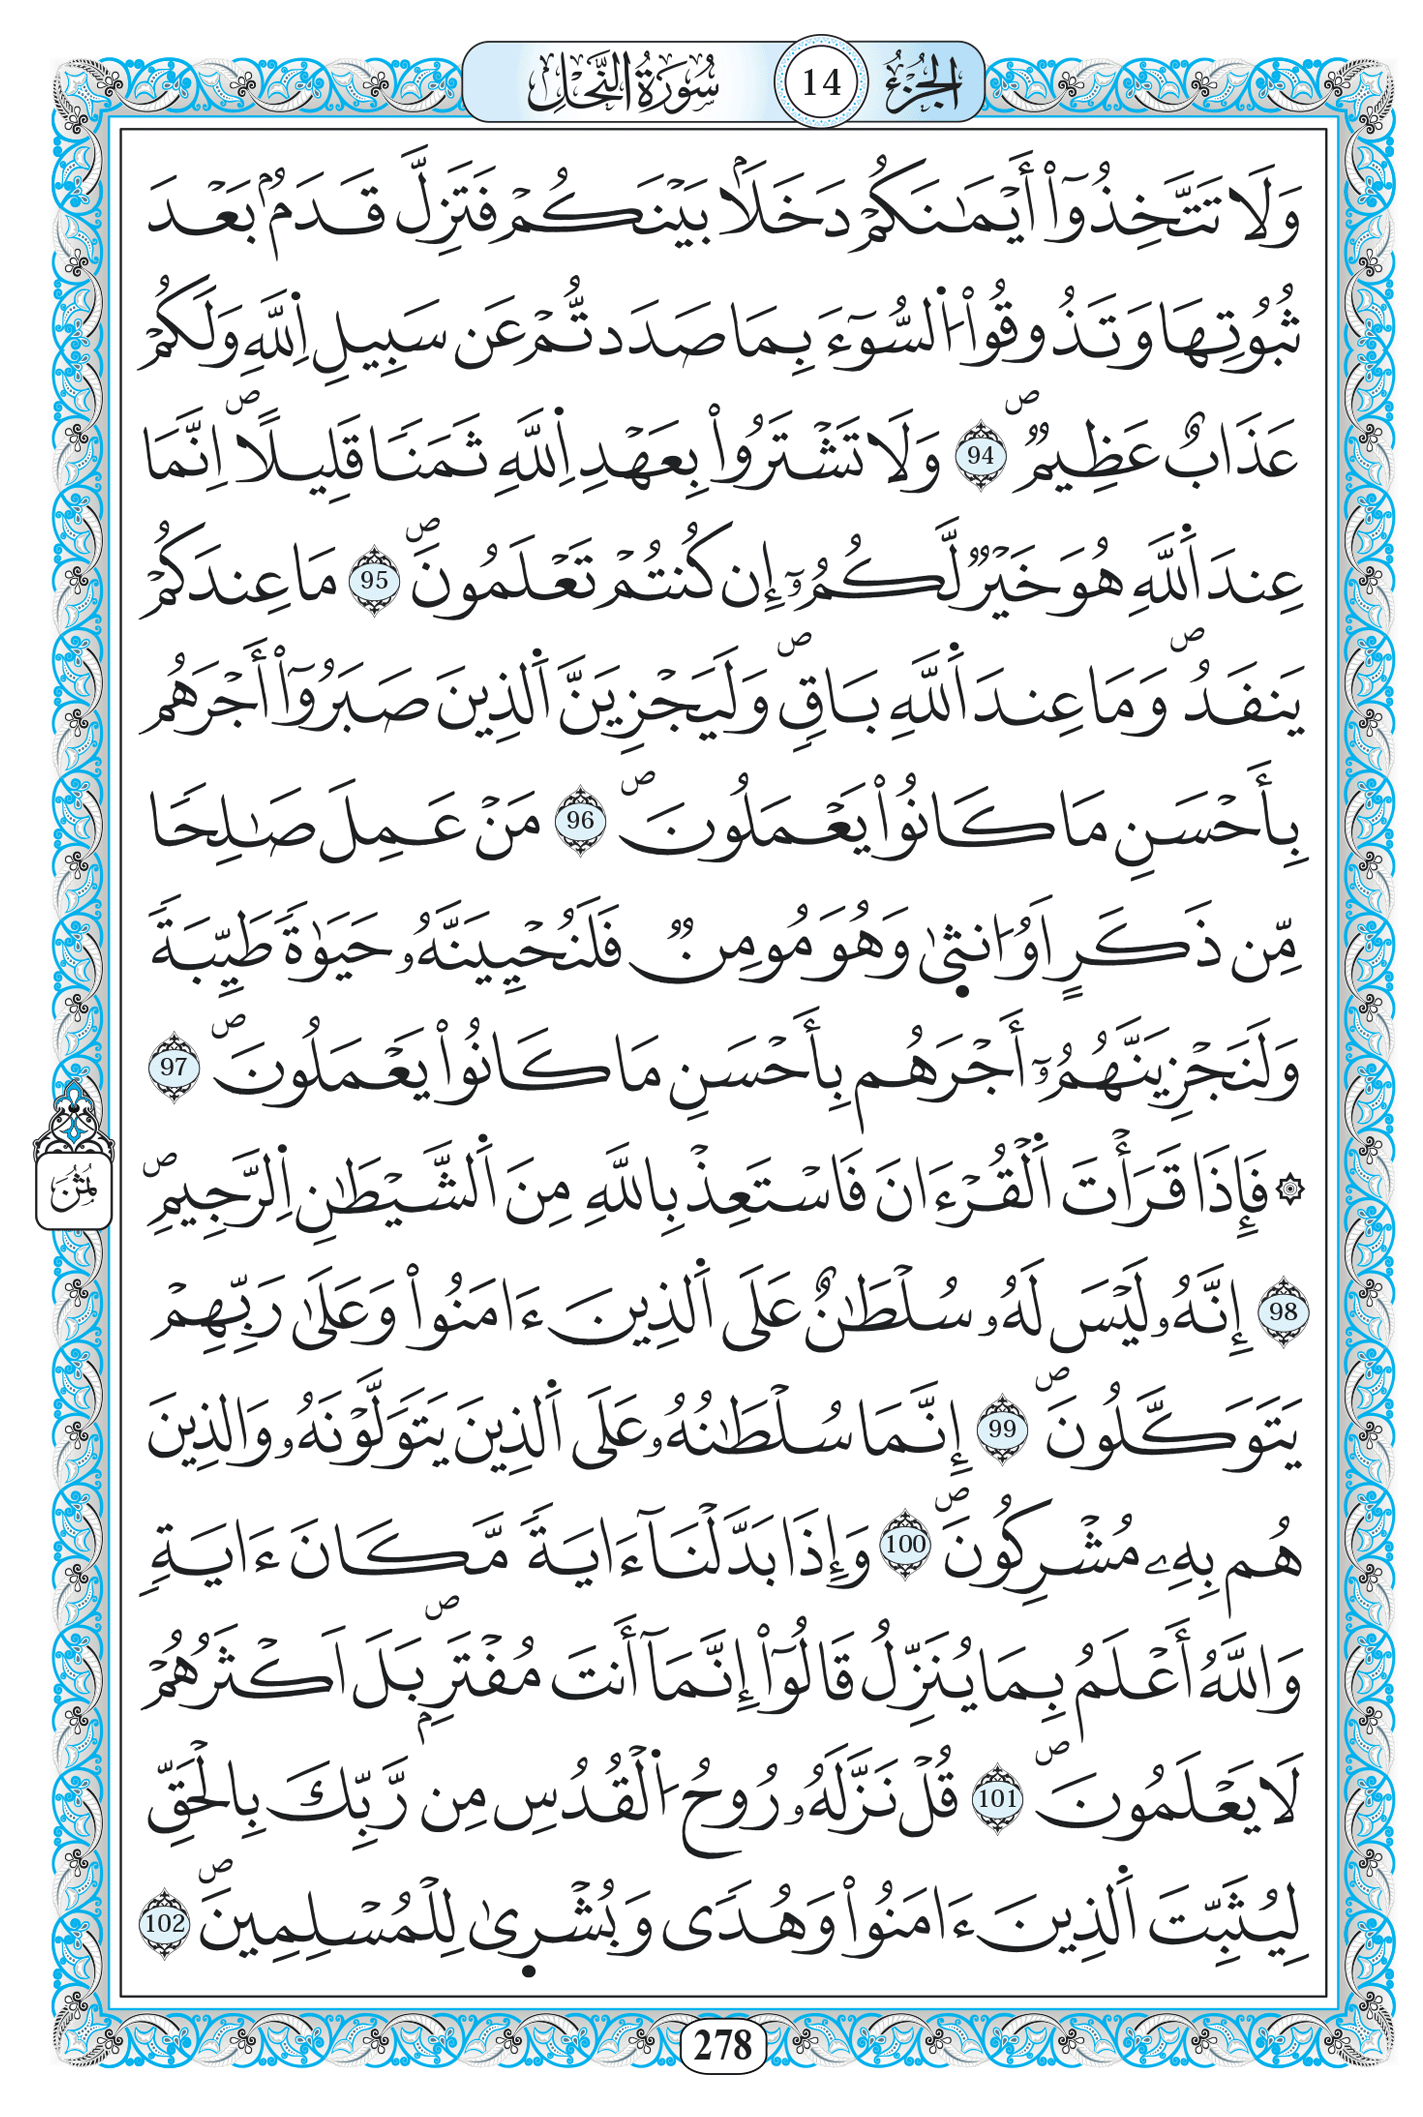 الجُزْءُ 14 سُورَةُ النَّحْلِ
وَلَا تَتَّخِذُوٓاْ أَيْمَٰنَكُمْ دَخَلَاۢ بَيْنَكُمْ فَتَزِلَّ قَدَمُۢ بَعْدَ
ثُبُوتِهَا وَتَذُوقُواْ اُ۬لسُّوٓءَ بِمَا صَدَدتُّمْ عَن سَبِيلِ اِ۬للَّهِ وَلَكُمْ
عَذَابٌ عَظِيمٞۖ 94 وَلَا تَشْتَرُواْ بِعَهْدِ اِ۬للَّهِ ثَمَنٗا قَلِيلًاۖ اِنَّمَا
عِندَ اَ۬للَّهِ هُوَ خَيْرٞ لَّكُمُۥٓ إِن كُنتُمْ تَعْلَمُونَۖ 95 مَا عِندَكُمْ
يَنفَدُۖ وَمَا عِندَ اَ۬للَّهِ بَاقٖۖ وَلَيَجْزِيَنَّ اَ۬لذِينَ صَبَرُوٓاْ أَجْرَهُم
بِأَحْسَنِ مَا كَانُواْ يَعْمَلُونَۖ 96 مَنْ عَمِلَ صَٰلِحٗا
مِّن ذَكَرٍ اَوُ ا۟نث۪ىٰ وَهُوَ مُومِنٞ فَلَنُحْيِيَنَّهُۥ حَيَوٰةٗ طَيِّبَةٗ
وَلَنَجْزِيَنَّهُمُۥٓ أَجْرَهُم بِأَحْسَنِ مَا كَانُواْ يَعْمَلُونَۖ 97
۞ فَإِذَا قَرَأْتَ اَ۬لْقُرْءَانَ فَاسْتَعِذْ بِاللَّهِ مِنَ اَ۬لشَّيْطَٰنِ اِ۬لرَّجِيمِۖ
98 إِنَّهُۥ لَيْسَ لَهُۥ سُلْطَٰنٌ عَلَى اَ۬لذِينَ ءَامَنُواْ وَعَلَىٰ رَبِّهِمْ
يَتَوَكَّلُونَۖ 99 إِنَّمَا سُلْطَٰنُهُۥ عَلَى اَ۬لذِينَ يَتَوَلَّوْنَهُۥ وَالذِينَ
هُم بِهِۦ مُشْرِكُونَۖ 100 وَإِذَا بَدَّلْنَآ ءَايَةٗ مَّكَانَ ءَايَةٖ
وَاللَّهُ أَعْلَمُ بِمَا يُنَزِّلُ قَالُوٓاْ إِنَّمَآ أَنتَ مُفْتَرِۢۖ بَلَ اَكْثَرُهُمْ
لَا يَعْلَمُونَۖ 101 قُلْ نَزَّلَهُۥ رُوحُ اُ۬لْقُدُسِ مِن رَّبِّكَ بِالْحَقِّ
لِيُثَبِّتَ اَ۬لذِينَ ءَامَنُواْ وَهُدٗى وَبُشْر۪ىٰ لِلْمُسْلِمِينَۖ 102
ثُمُنَ
278